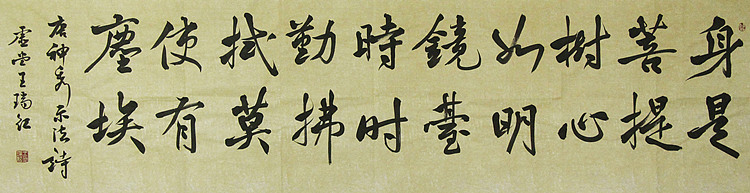 身是
菩提
樹心
如明
鏡臺
時时
勤拂
拭莫
使有
塵埃
唐神秀示法詩
虚堂王瑞红